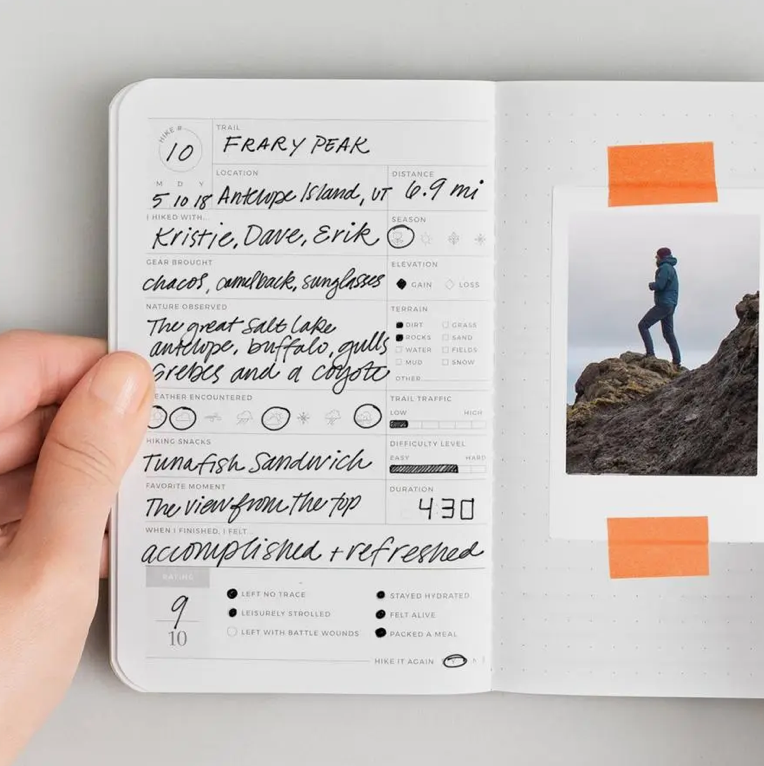 HIKE #
10
TRAIL
FRARY PEAK
M D Y
5 10 18
LOCATION
Antelope Island, UT
DISTANCE
6.9 mi
I HIKED WITH...
Kristie, Dave, Erik
SEASON
GEAR BROUGHT
chacos, camelback, sunglasses
ELEVATION
GAIN LOSS
NATURE OBSERVED
The great Salt Lake
antelope, buffalo, gulls
Grebes and a coyote
TERRAIN
DIRT GRASS
ROCKS SAND
WATER FIELDS
MUD SNOW
OTHER
EATHER ENCOUNTERED
TRAIL TRAFFIC
LOW HIGH
HIKING SNACKS
Tunafish Sandwich
DIFFICULTY LEVEL
EASY HARD
FAVORITE MOMENT
The view from the top
DURATION
430
WHEN I FINISHED, I FELT...
accomplished + refreshed
RATING
9
10
LEFT NO TRACE
LEISURELY STROLLED
LEFT WITH BATTLE WOUNDS
STAYED HYDRATED
FELT ALIVE
PACKED A MEAL
HIKE IT AGAIN